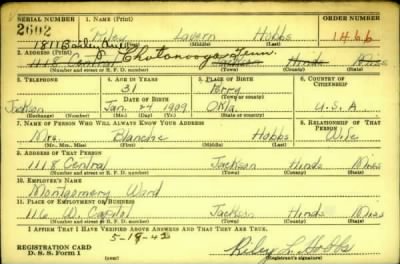 SERIAL NUMBER 1. NAME (Print) ORDER NUMBER
2602 Riley Lavern Hobbs 1466
(First) (Middle) (Last)
1811 Bailey Ave. Chatanooga Tenn.
2. ADDRESS (Print)
1118 Central Jackson Hinds Miss
(Number and street or R. F. D. number) (Town) (County) (State)
3. TELEPHONE 4. AGE IN YEARS 5. PLACE OF BIRTH 6. COUNTRY OF CITIZENSHIP
31 Perry
DATE OF BIRTH (Town or county)
Jackson Jan 27 1909 Okla. U.S.A
(Exchange) (Number) (Mo.) (Day) (Yr.) (State or country)
7. NAME OF PERSON WHO WILL ALWAYS KNOW YOUR ADDRESS 8. RELATIONSHIP OF THAT PERSON
Mrs. Blanche Hobbs Wife
(Mr., Mrs., Miss) (First) (Middle) (Last)
9. ADDRESS OF THAT PERSON
1118 Central Jackson Hinds Miss
(Number and street or R. F. D. number) (Town) (County) (State)
10. EMPLOYER'S NAME
Montgomery Ward
11. PLACE OF EMPLOYMENT OR BUSINESS
116 W. Capitol Jackson Hinds Miss
(Number and street or R. F. D. number) (Town) (County) (State)
I AFFIRM THAT I HAVE VERIFIED ABOVE ANSWERS AND THAT THEY ARE TRUE.
5-19-42
REGISTRATION CARD Riley L. Hobbs
D. S. S. Form 1 (Registrant's signature)